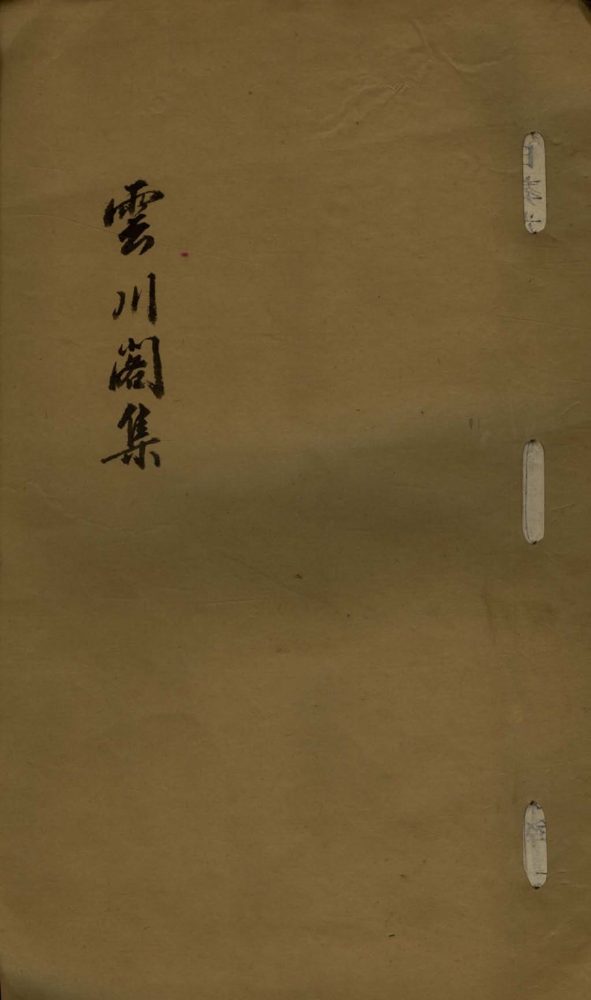 雲川閣集